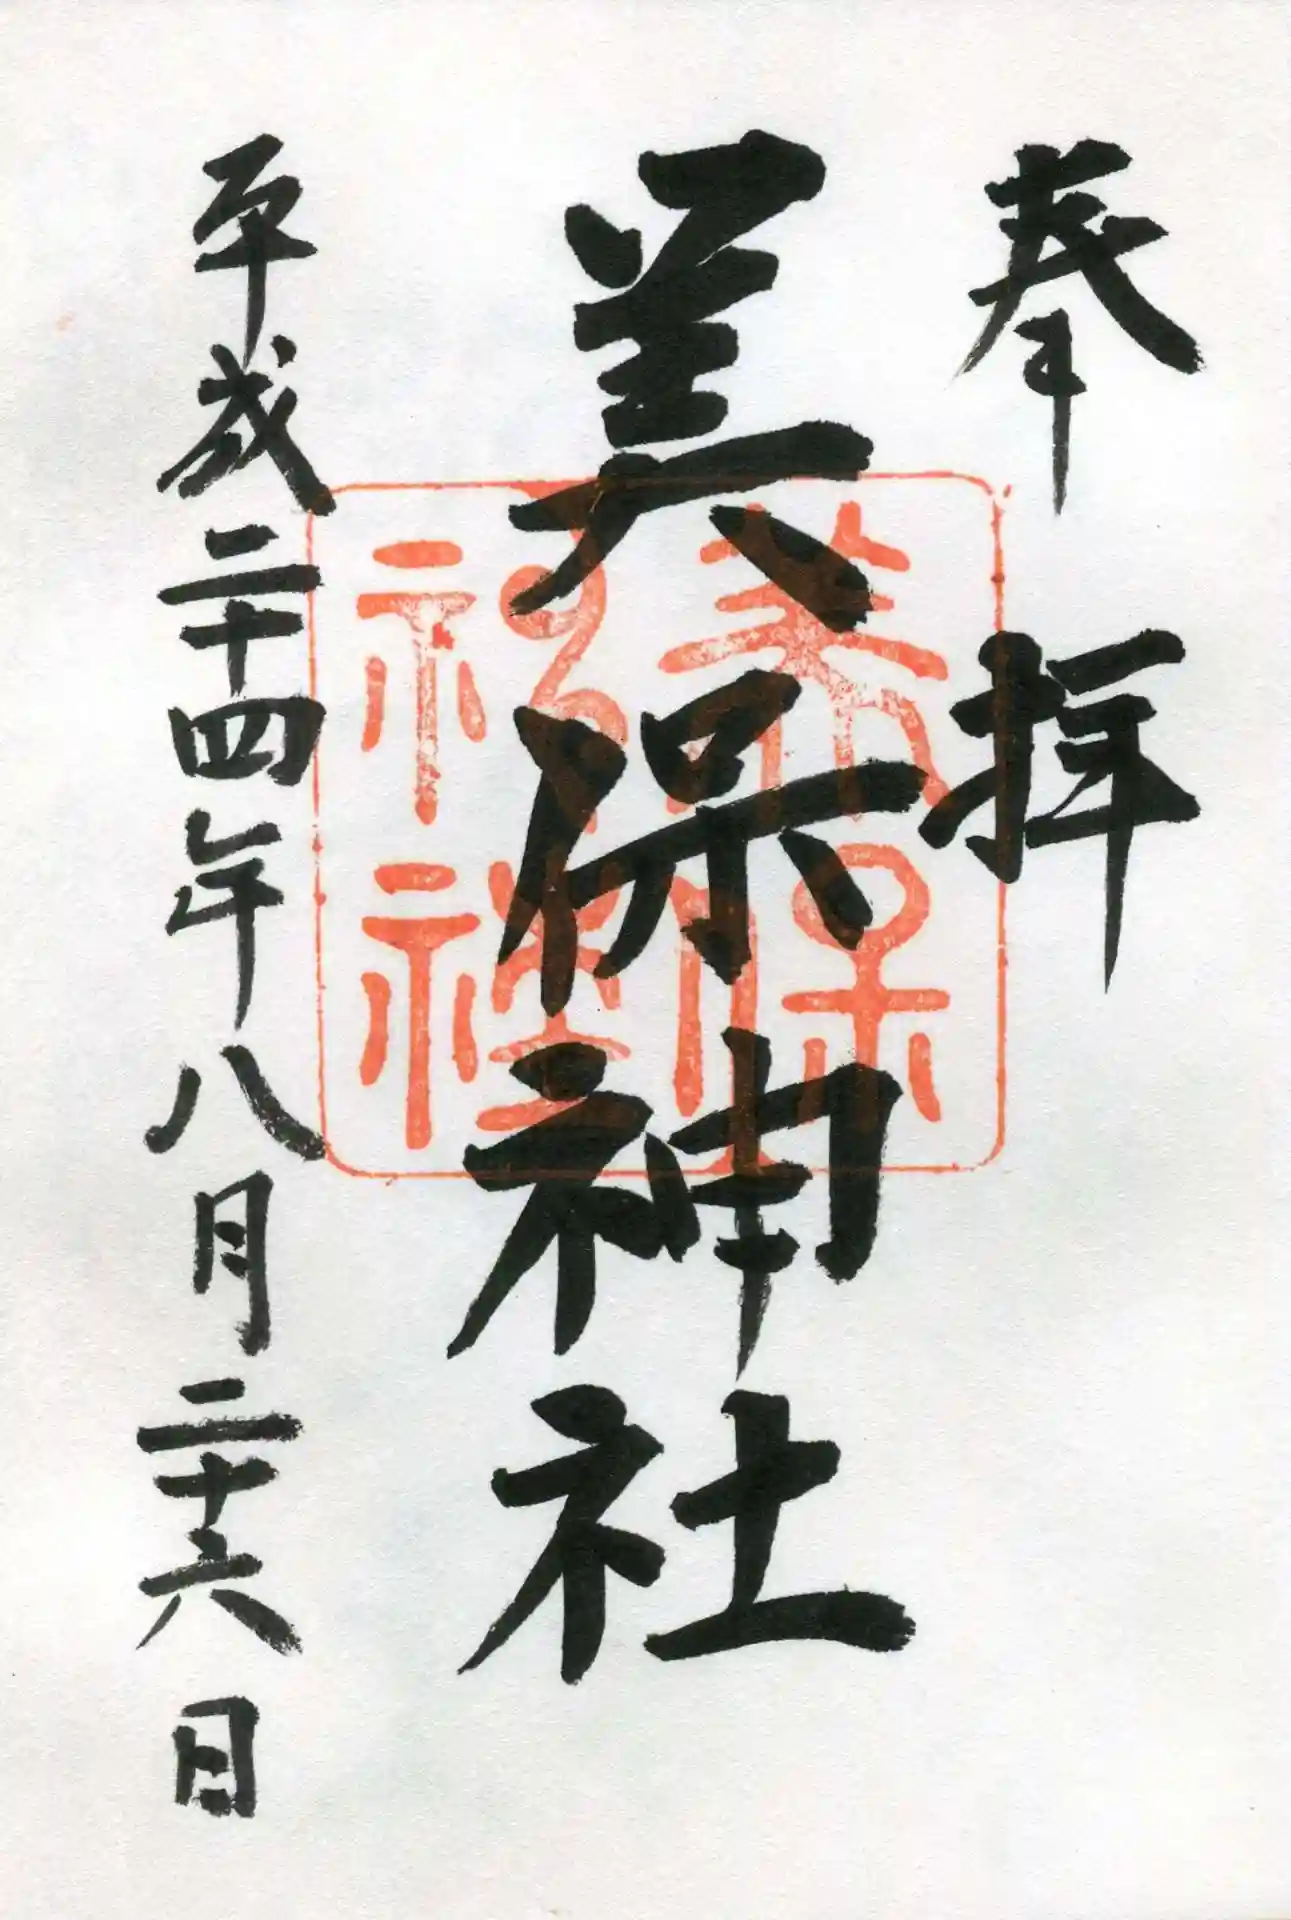 奉拝
美保神社
美保
神社
平成二十四年八月二十六日